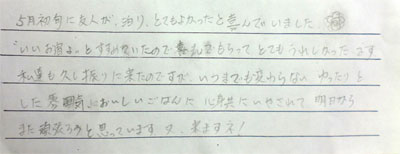 5月初旬に友人が、泊り、とてもよかったと喜んでいました
"いいお宿よ"とすすめないたので 来てもらって とてもうれしかった です
私達も久し振りに来たのですが、いつまでも変わらない ゆったりと
した雰囲気においしいごはんに 心身共にいやされて 明日から
また頑張ろうと思っています 又、来ますネ!